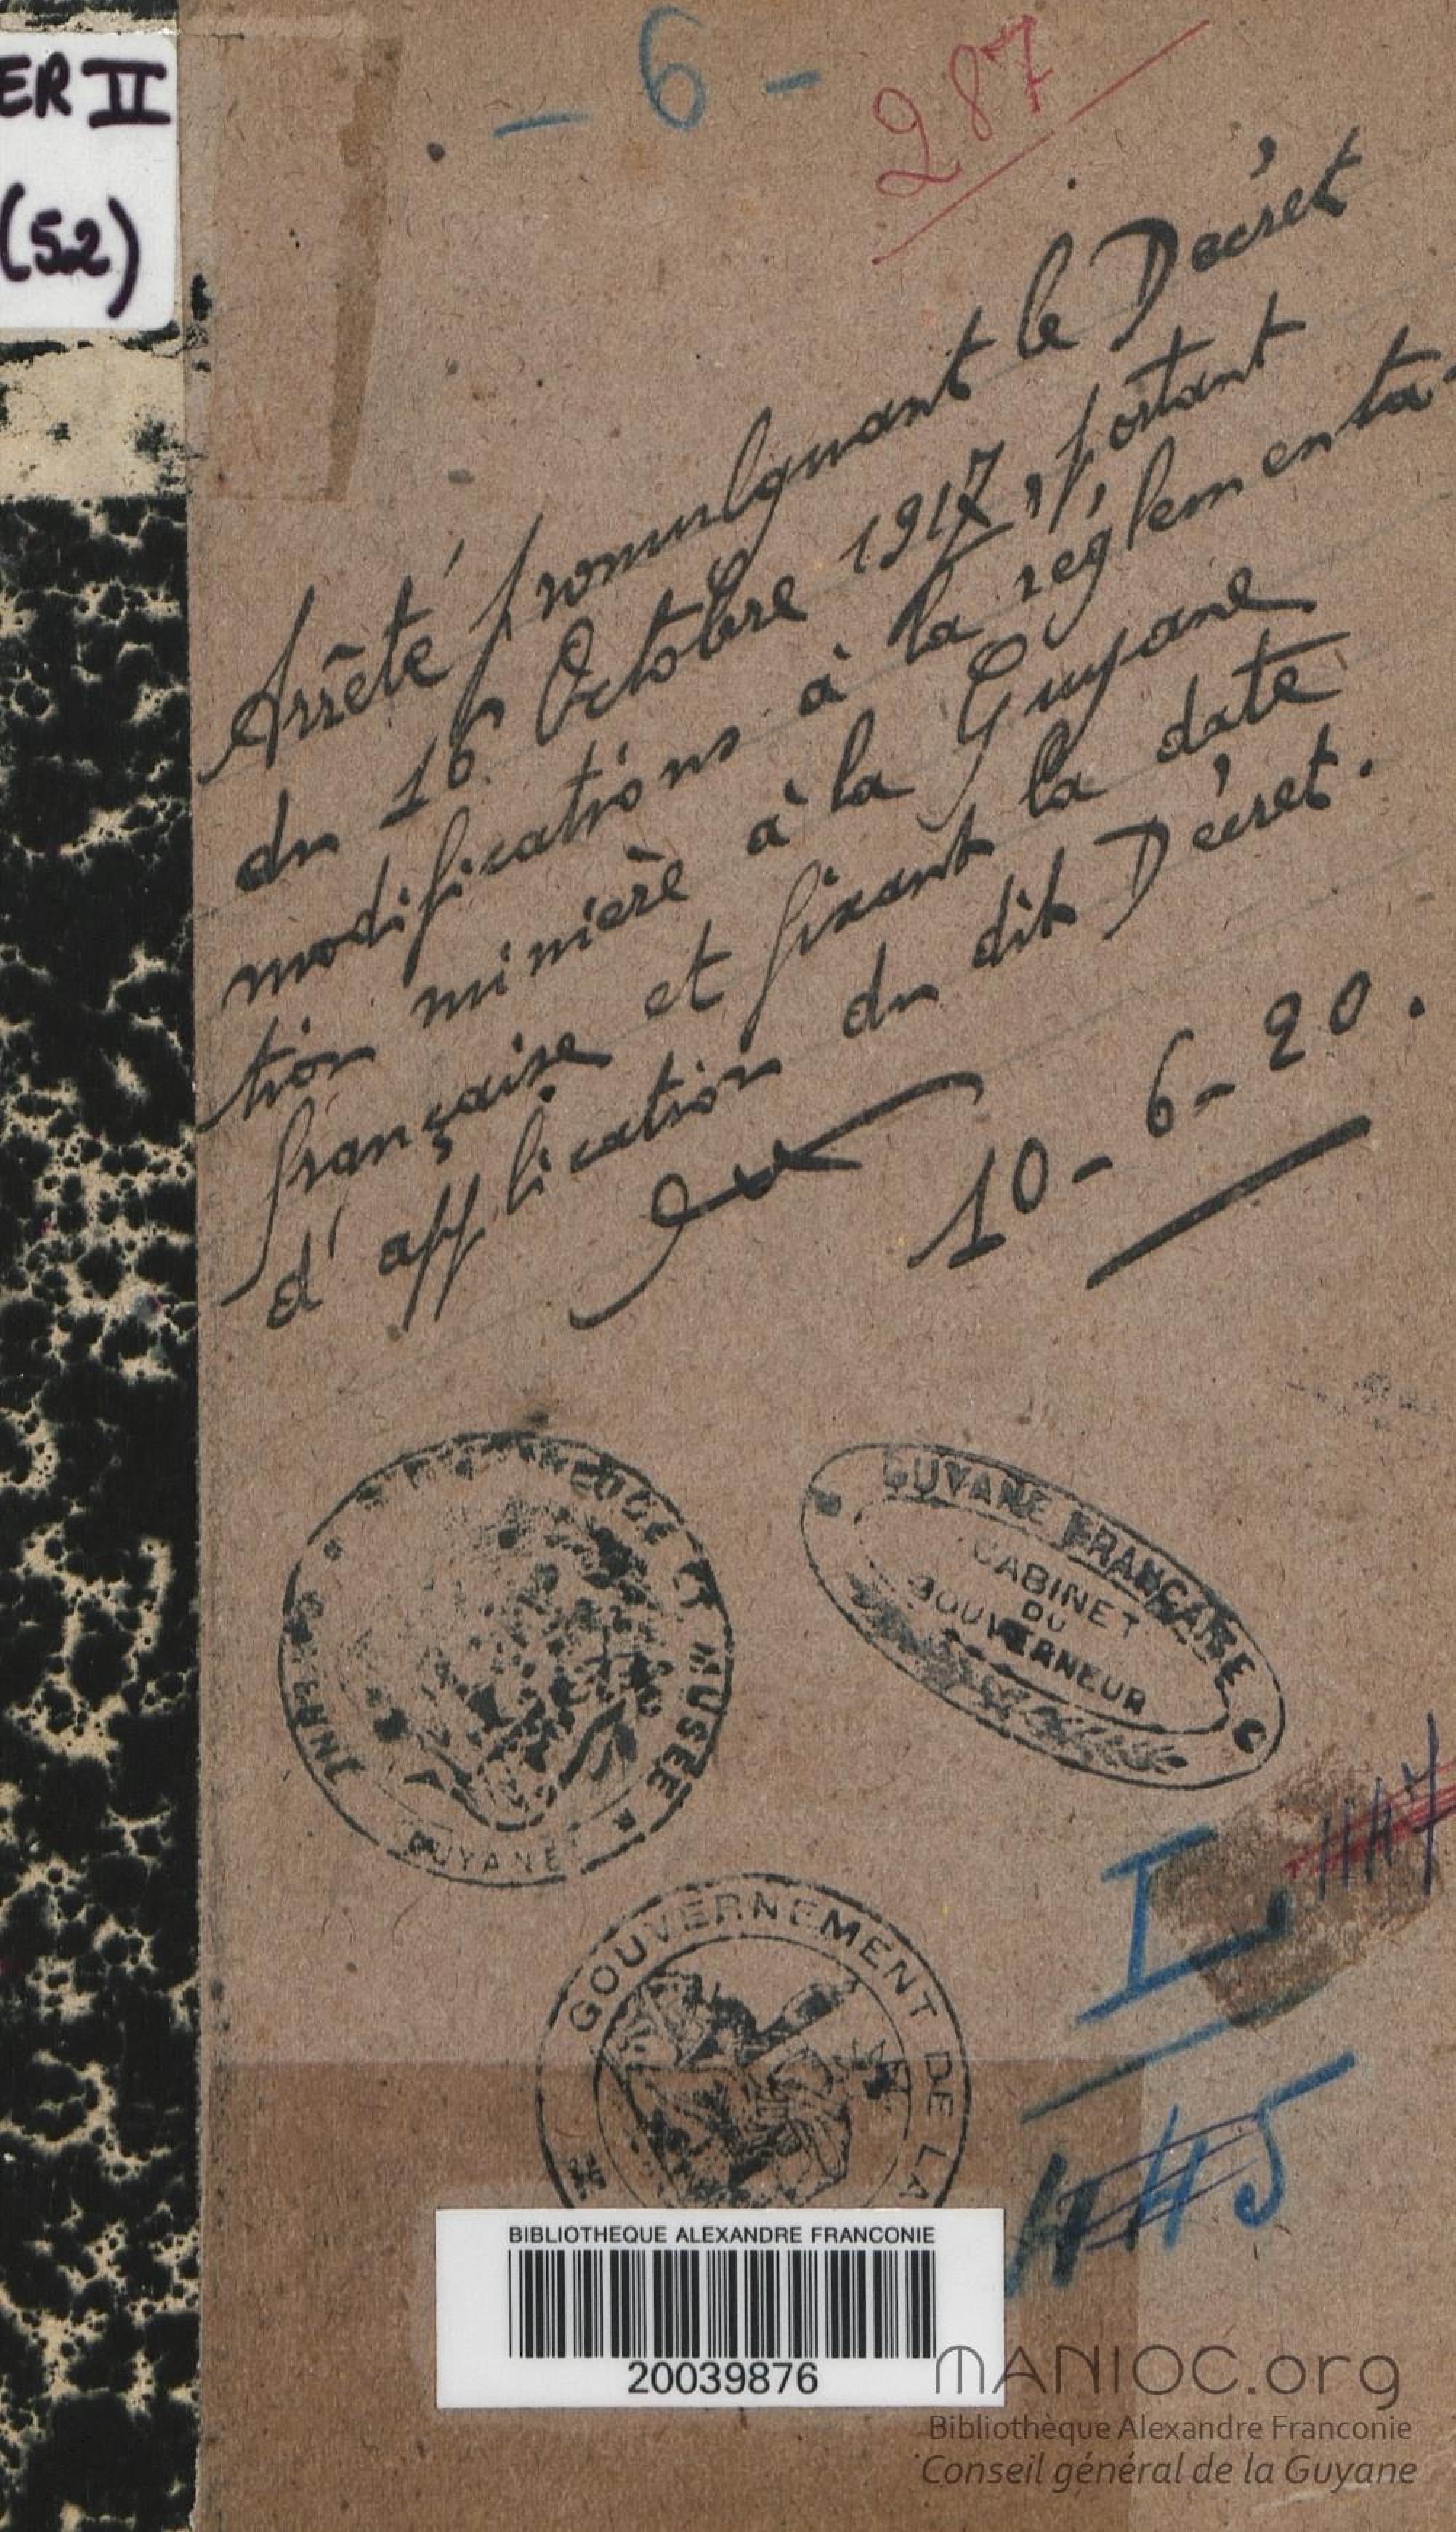 ER II
(52)
- 6 -
287
Arrêté promulguant le Décret
du 16 Octobre 1917, portant
modifications à la réglementa-
tion minière à la Guyane
française et fixant la date
d'application du dit Décret.
10-6-20.
MUSÉE
GUYANE
GUYANE FRANÇAISE
CABINET
DU
GOUVERNEUR
GOUVERNEMENT DE LA
BIBLIOTHEQUE ALEXANDRE FRANCONIE
20039876
MANIOC.org
Bibliothèque Alexandre Franconie
Conseil général de la Guyane